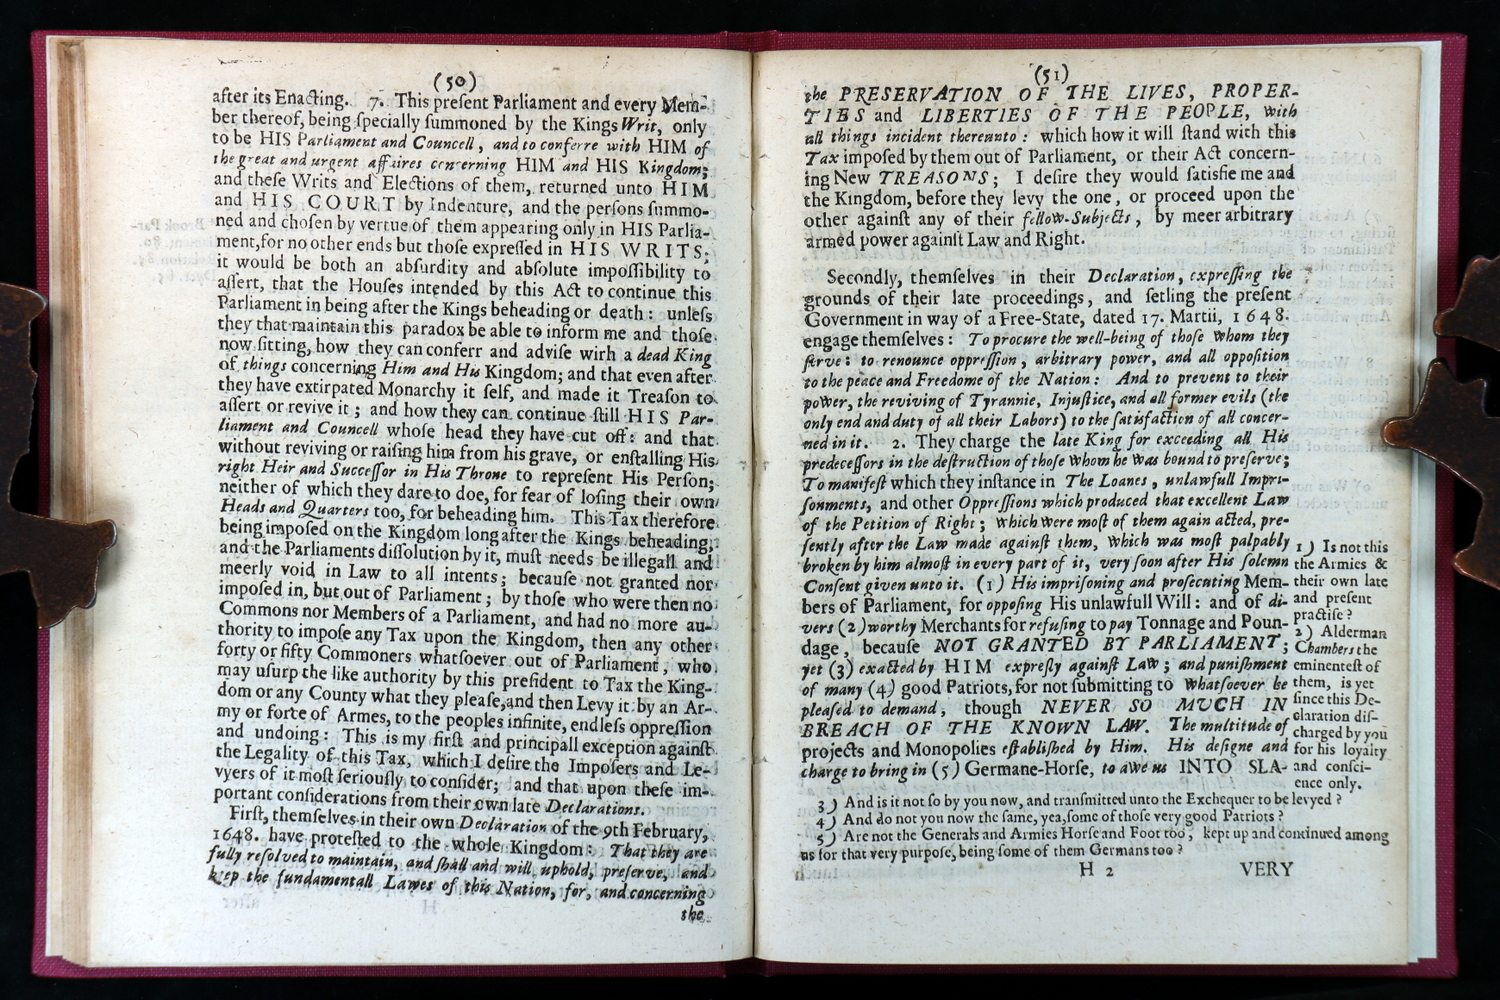 (50)
after its Enacting. 7. This present Parliament and every Mem-
ber thereof, being specially summoned by the Kings Writ, only
to be HIS Parliament and Councell, and to conferre with HIM of
the great and urgent affaires concerning HIM and HIS Kingdom;
and these Writs and Elections of them, returned unto HIM
and HIS COURT by Indenture, and the persons summo-
ned and chosen by vertue of them appearing only in HIS Parlia-
ment, for no other ends but those expressed in HIS WRITS;
it would be both an absurdity and absolute impossibility to
assert, that the Houses intended by this Act to continue this
Parliament in being after the Kings beheading or death: unless
they that maintain this paradox be able to inform me and those
now sitting, how they can conferr and advise wirh a dead King
of things concerning Him and His Kingdom; and that even after
they have extirpated Monarchy it self, and made it Treason to
assert or revive it; and how they can continue still HIS Par-
liament and Councell whose head they have cut off: and that
without reviving or raising him from his grave, or enstalling His
right Heir and Successor in His Throne to represent His Person;
neither of which they dare to doe, for fear of losing their own
Heads and Quarters too, for beheading him. This Tax therefore
being imposed on the Kingdom long after the Kings beheading,
and the Parliaments dissolution by it, must needs be illegall and
meerly void in Law to all intents; because not granted nor
imposed in, but out of Parliament; by those who were then no
Commons nor Members of a Parliament, and had no more au-
thority to impose any Tax upon the Kingdom, then any other
forty or fifty Commoners whatsoever out of Parliament, who
may usurp the like authority by this president to Tax the King-
dom or any County what they please, and then Levy it by an Ar-
my or forte of Armes, to the peoples infinite, endless oppression
and undoing: This is my first and principall exception against
the Legality of this Tax, which I desire the Imposers and Le-
vyers of it most seriously to consider; and that upon these im-
portant considerations from their own late Declarations.
First, themselves in their own Declaration of the 9th February,
1648. have protested to the whole Kingdom: That they are
fully resolved to maintain, and shall and will uphold, preserve, and
keep the fundamentall Lawes of this Nation, for, and concerning
the
(51)
the PRESERVATION OF THE LIVES, PROPER-
TIES and LIBERTIES OF THE PEOPLE, with
all things incident thereunto: which how it will stand with this
Tax imposed by them out of Parliament, or their Act concern-
ing New TREASONS; I desire they would satisfie me and
the Kingdom, before they levy the one, or proceed upon the
other against any of their fellow-Subjects, by meer arbitrary
armed power against Law and Right.
Secondly, themselves in their Declaration, expressing the
grounds of their late proceedings, and setling the present
Government in way of a Free-State, dated 17. Martii, 1648.
engage themselves: To procure the well-being of those whom they
serve: to renounce oppression, arbitrary power, and all opposition
to the peace and Freedome of the Nation: And to prevent to their
power, the reviving of Tyrannie, Injustice, and all former evils (the
only end and duty of all their Labors) to the satisfaction of all concer-
ned in it. 2. They charge the late King for exceeding all His
predecessors in the destruction of those whom he was bound to preserve;
To manifest which they instance in The Loanes, unlawfull Impri-
sonments, and other Oppressions which produced that excellent Law
of the Petition of Right; which were most of them again acted, pre-
sently after the Law made against them, which was most palpably
broken by him almost in every part of it, very soon after His solemn
Consent given unto it. (1) His imprisoning and prosecuting Mem-
bers of Parliament, for opposing His unlawfull Will: and of di-
vers (2) worthy Merchants for refusing to pay Tonnage and Poun-
dage, because NOT GRANTED BY PARLIAMENT;
yet (3) exacted by HIM expresly against Law; and punishment
of many (4) good Patriots, for not submitting to whatsoever he
pleased to demand, though NEVER SO MUCH IN
BREACH OF THE KNOWN LAW. The multitude of
projects and Monopolies established by Him. His designe and
charge to bring in (5) Germane-Horse, to awe us INTO SLA-
1) Is not this
the Armies &
their own late
and present
practise?
2) Alderman
Chambers the
eminentest of
them, is yet
since this De-
claration dis-
charged by you
for his loyalty
and consci-
ence only.
3) And is it not so by you now, and transmitted unto the Exchequer to be levyed?
4) And do not you now the same, yea, some of those very good Patriots?
5) Are not the Generals and Armies Horse and Foot too, kept up and continued among
us for that very purpose, being some of them Germans too?
H 2 VERY